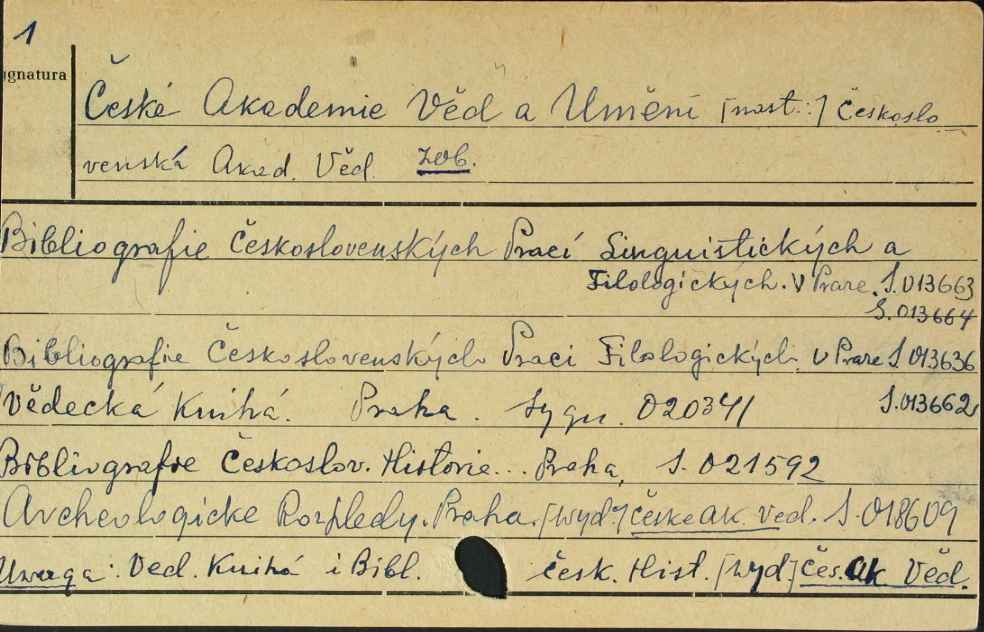 1
ygnatura
České Akademie Věd a Umění [nast.:] Českoslo
venská Akad. Věd. zob.
Bibliografie Československých Prací Linguistických a
Filologických. V Praze. S.013663
S.013664
Bibliografie Československých Praci Filologických v Praze S.013636
Vědecká Knihá. Praha. Sygn. 020341 S.013662
Bibliografie Českoslov. Historie... Praha, S.021592
Archeologicke Rozhledy. Praha. [wyd.] české ak. věd. S.018609
Uwaga: Ved. Knihá i Bibl. česk. Hist. [wyd] čes. ak Věd.